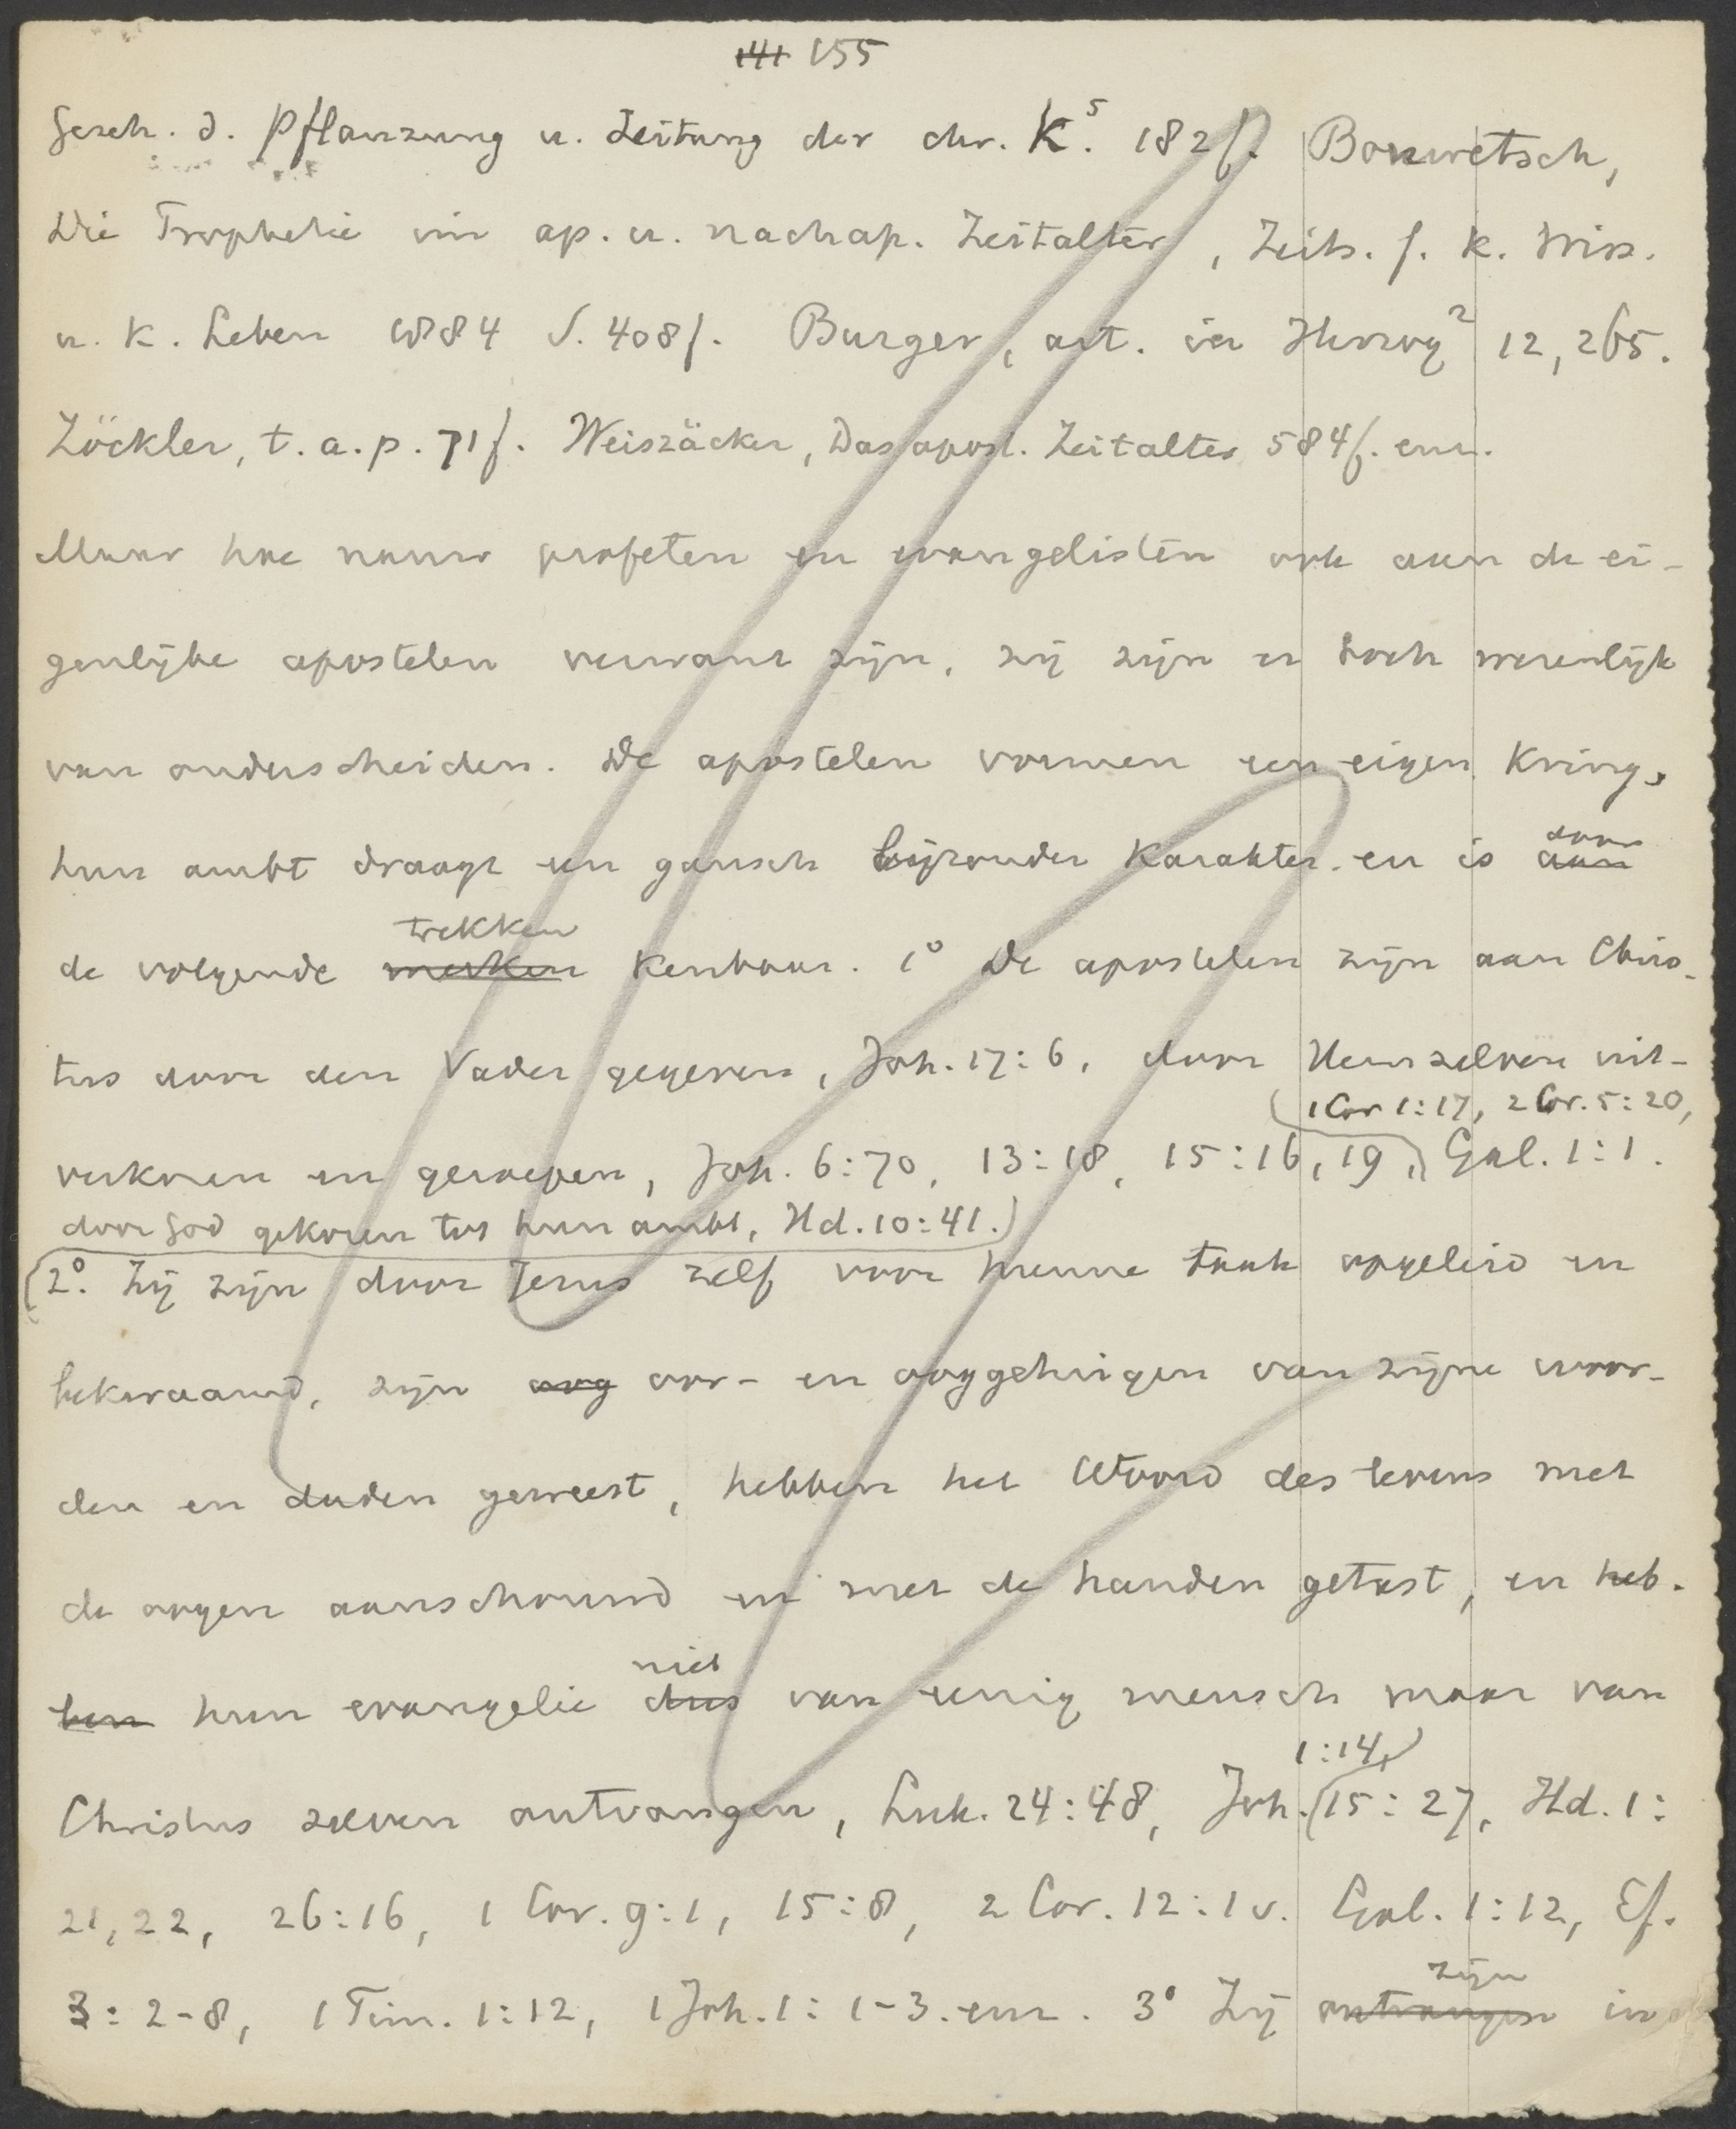 141 155
Gesch. d. Pflanzung u. Leitung der chr. K.⁵ 182 f. Bonwetsch,
Die Prophetie im ap. u. nachap. Zeitalter, Zeits. f. k. Wiss.
u. k. Leben 1884 S. 408 f. Burger, art. in Herzog² 12, 265.
Zöckler, t.a.p. 71 f. Weiszäcker, Das apost. Zeitalter 584 f. enz.
Maar hoe nauw profeten en evangelisten ook aan de ei-
genlijke apostelen verwant zijn, zij zijn er toch wezenlijk
van onderscheiden. De apostelen vormen een eigen kring,
door
hun ambt draagt een gansch bijzonder karakter en is aan
trekken
de volgende merken kenbaar. 1° De apostelen zijn aan Chris-
tus door den Vader gegeven, Joh. 17:6, door Hemzelven uit-
1 Cor 1:17, 2 Cor. 5:20,
verkoren en geroepen, Joh. 6:70, 13:18, 15:16, 19, Gal. 1:1.
door God gekoren tot hun ambt, Hd. 10:41.
2°. Zij zijn door Jezus zelf voor hunne taak opgeleid en
bekwaamd, zijn oog oor- en ooggetuigen van zijne woor-
den en daden geweest, hebben het Woord des levens met
de oogen aanschouwd en met de handen getast, en heb-
niet
ben hun evangelie dus van eenig mensch maar van
1:14,
Christus zelven ontvangen, Luk. 24:48, Joh. 15:27, Hd. 1:
21, 22, 26:16, 1 Cor. 9:1, 15:8, 2 Cor. 12:1 v. Gal. 1:12, Ef.
zijn
3:2-8, 1 Tim. 1:12, 1 Joh. 1:1-3. enz. 3° Zij ontvangen in